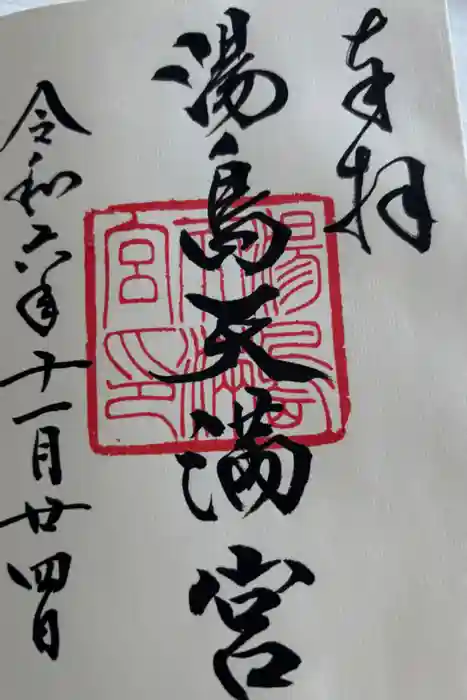 奉拝
湯島天満宮
湯島天満宮印
令和六年十一月廿四日